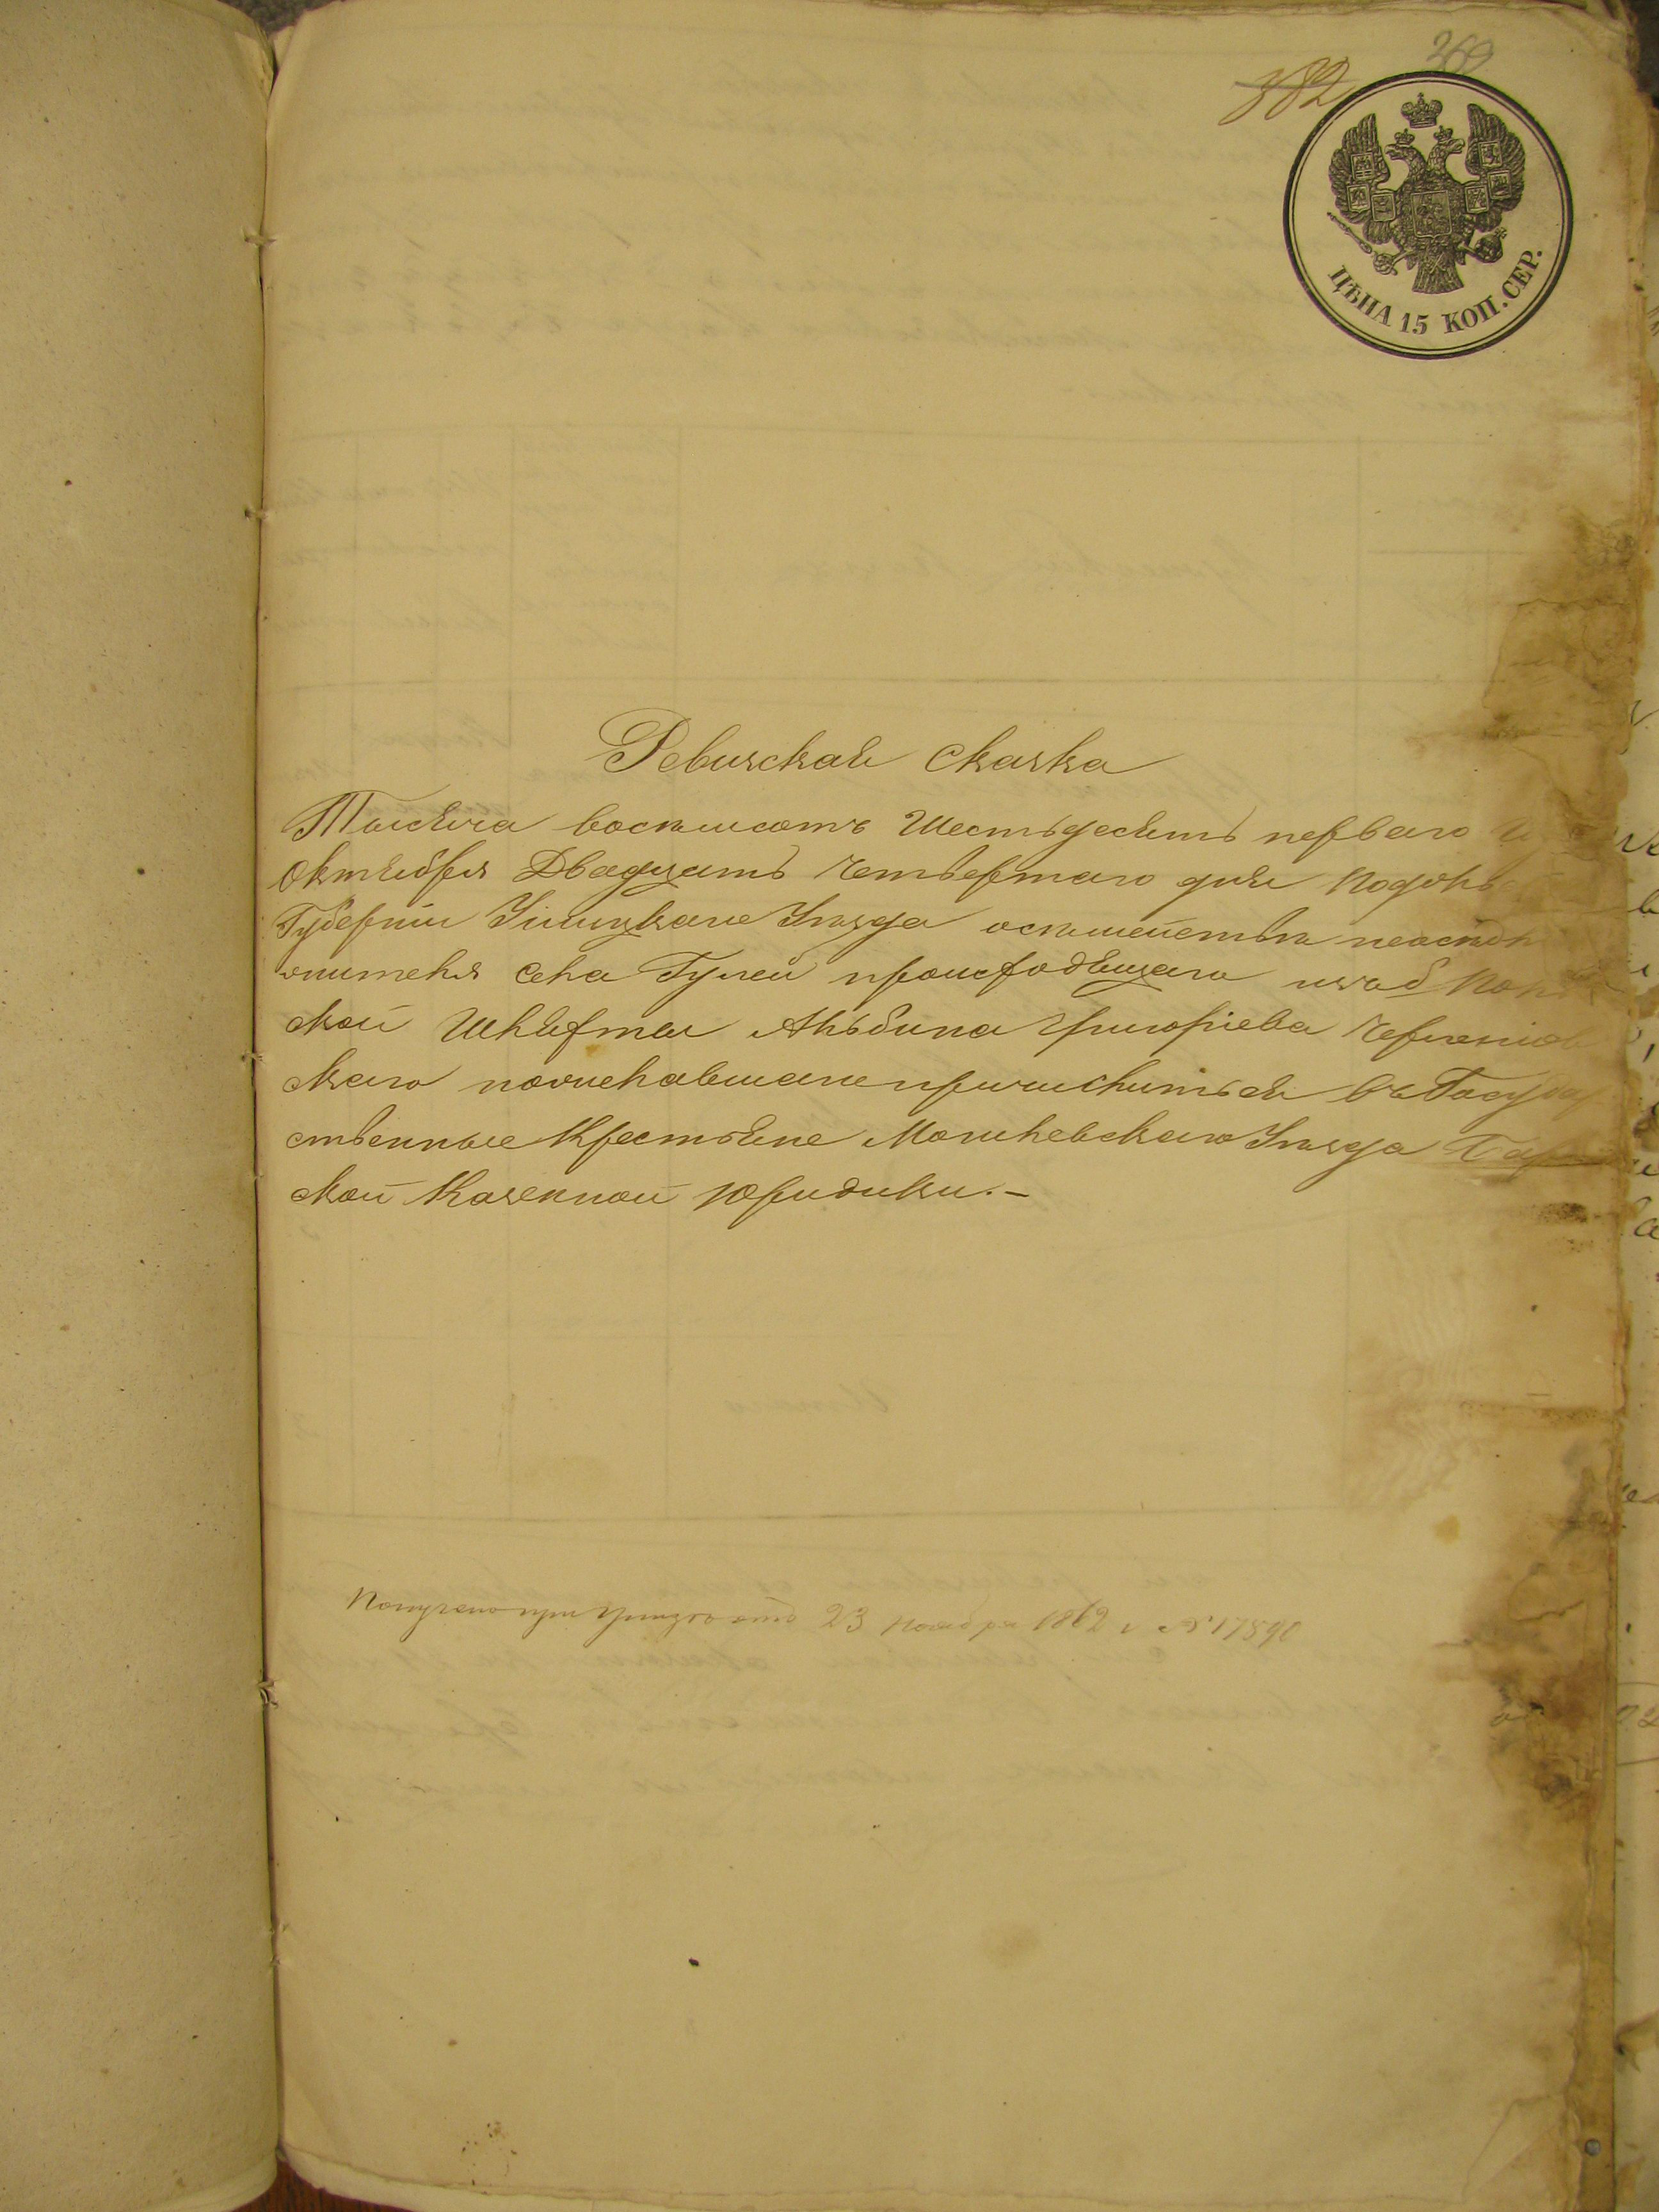 382
369
ЦѢНА 15 КОП. СЕР.
Ревизская сказка
Тысяча восемьсотъ Шестьдесятъ перваго
Октября Двадцать четвертаго дня Подоль
Губерніи Ушицкаго Уѣзда о
жителя села Гулей происходящаго изъ б Поль
ской Шляхты Альбина Григоріева
скаго пожелавшаго причислиться въ Государ
ственные Крестьяне Могилевскаго Уѣзда Бар
ской Казенной Юридики.-
Получено при Указѣ отъ 23 Ноября 1862 г № 17590